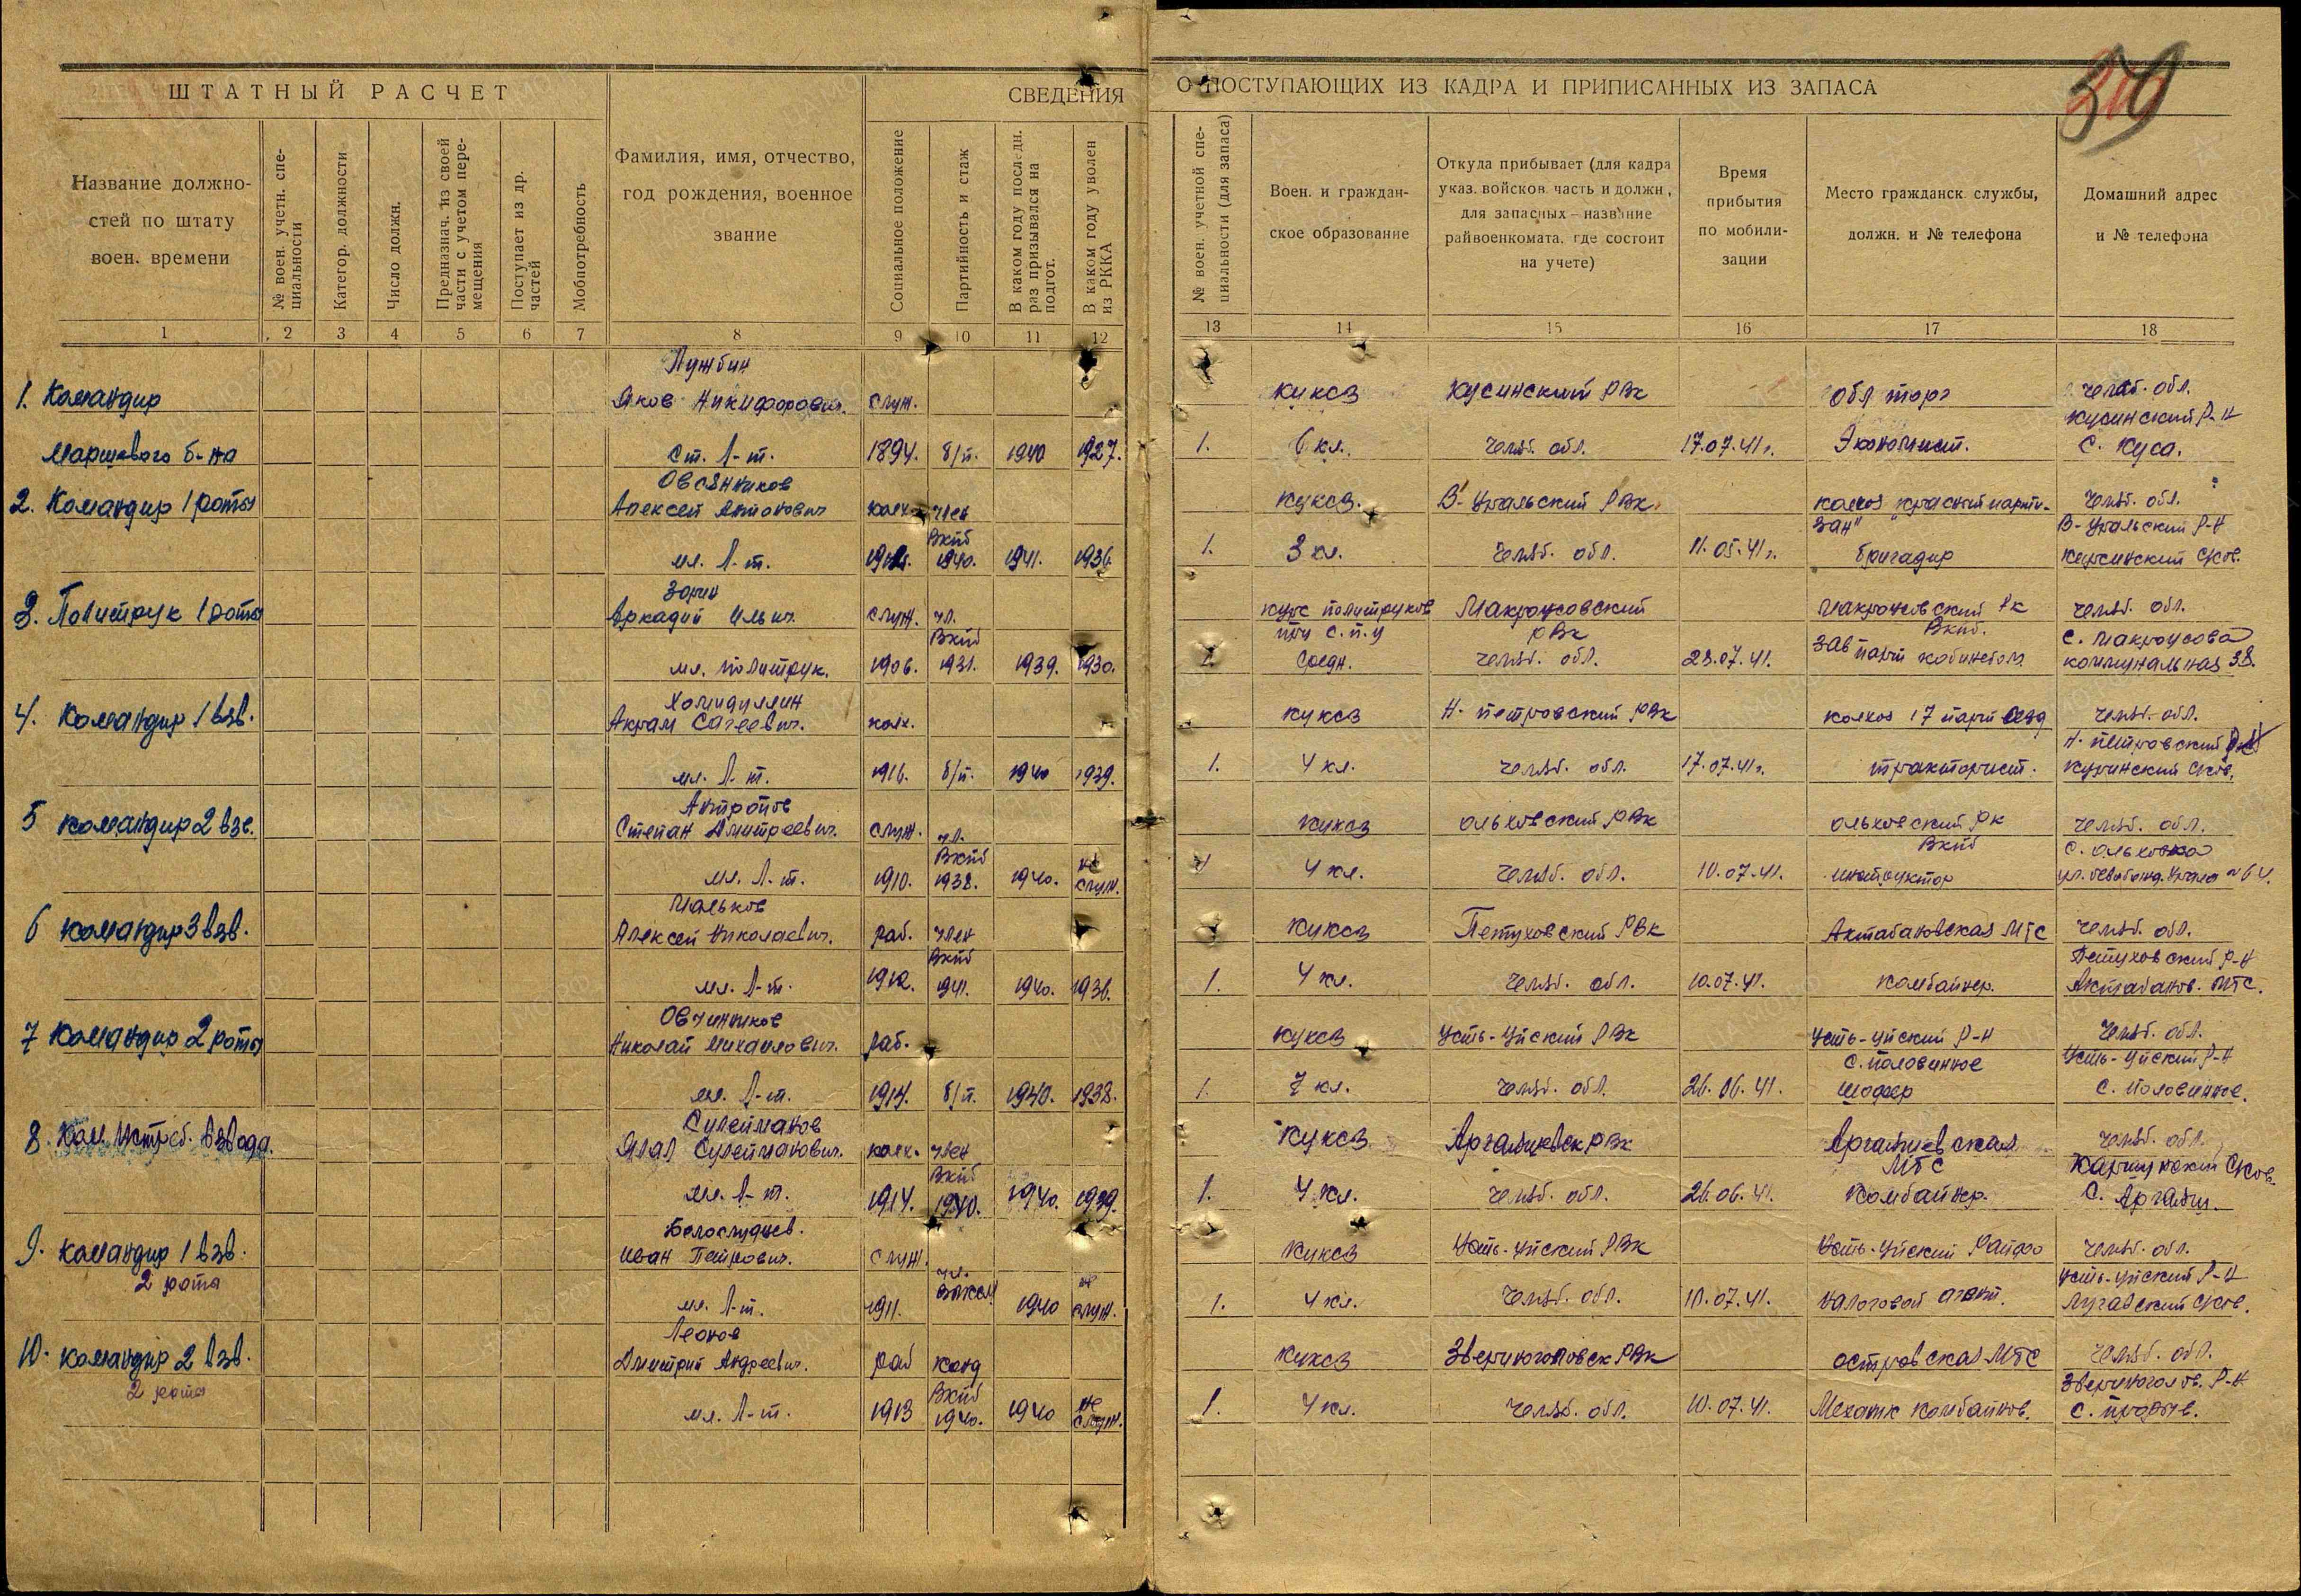 ШТАТНЫЙ РАСЧЕТ
СВЕДЕНИЯ
О ПОСТУПАЮЩИХ ИЗ КАДРА И ПРИПИСАННЫХ ИЗ ЗАПАСА
Название должно-
стей по штату
воен. времени
№ воен. учетн. спе-
циальности
Категор. должности
Число должн.
Предназнач. из своей
части с учетом пере-
мещения
Поступает из др.
частей
Мобпотребность
Фамилия, имя, отчество,
год рождения, военное
звание
Социальное положение
Партийность и стаж
В каком году последн.
раз призывался на
подгот.
В каком году уволен
из РККА
№ воен. учетной спе-
циальности (для запаса)
Воен. и граждан-
ское образование
Откуда прибывает (для кадра
указ. войсков. часть и должн.,
для запасных – название
райвоенкомата, где состоит
на учете)
Время
прибытия
по мобили-
зации
Место гражданск. службы,
должн. и № телефона
Домашний адрес
и № телефона
1 2 3 4 5 6 7 8 9 10 11 12 13 14 15 16 17 18
Лужбин
1. Командир Яков Никифорович. служ. Куксз Кусинский РВК Обл торг Челяб. обл.
Кусинский Р-Н
Маршевого б-на ст. Л-т. 1894. б/п. 1940 1927. 1. 6 кл. Челяб. обл. 17.07.41г. Экономист. С. Куса.
Овсянников
2. Командир 1 роты Алексей Антонович колх. член Куксз. В-Уральский РВК. колхоз "Красный парти- Челяб. обл.
ВКПб зан" В-Уральский Р-Н
мл. Л-т. 1940. 1941. 1936 1. 3 кл. Челяб. обл. 11.05.41г. бригадир
Зорин
3. Политрук 1 роты Аркадий Ильич. служ. чл. Курс политруков Макроусовский Макроусовский РК Челяб. обл.
ВКПб при С.П.У РВК ВКПб. С. Макроусова
мл. политрук. 1906. 1931. 1939. 1930. Челяб. обл. 23.07.41. Зав парт кабинетом. коммунальная 38.
Холидуллин
4. Командир 1 взв. Акрам Сагеевич. колх. Куксз Н-Петровский РВК колхоз 17 парт Челяб. обл.
Н-Петровский
мл. Л-т. 1916. б/п. 1940 1939. 1. 4 кл. Челяб. обл. 17.07.41г. тракторист.
Антропов
5 Командир 2 взв. Степан Дмитреевич. служ. чл. Куксз Ольховский РВК Ольховский РК Челяб. обл.
ВКПб ВКПб С. Ольховка
мл. Л-т. 1910. 1938. 1940. не служ. 4 кл. Челяб. обл. 10.07.41. инструктор ул. Освобожд. Урала № 64.
Мальков
6 Командир 3 взв. Алексей Николаевич. раб. член Куксз Петуховский РВК Актабановская МТС Челяб. обл.
ВКПб Петуховский Р-Н
мл. Л-т. 1912. 1941. 1940. 1936. 1. 4 кл. Челяб. обл. 10.07.41. комбайнер. Актабанов. МТС.
Овчинников
7 Командир 2 роты Николай Михайлович. раб. Куксз Усть-Уйский РВК Усть-Уйский Р-Н Челяб. обл.
С. Половинное Усть-Уйский Р-Н
мл. Л-т. 1914. б/п. 1940. 1938. 1. 7 кл. Челяб. обл. 26.06.41. шофер С. Половинное.
Сулейманов
8. Ком. истреб. взвода. Ялал Сулейманович. колх. член Куксз Аргаяшевск РВК Аргаяшевская Челяб. обл.
ВКПб МТС
мл. Л-т. 1914. 1940. 1940. 1939. 1. 4 кл. Челяб. обл. 26.06.41. Комбайнер. С. Аргаяш.
Белослудцев.
9. Командир 1 взв. Иван Петрович. служ. чл. Куксз Усть-Уйский РВК Усть-Уйский Райфо Челяб. обл.
2 рота ВЛКСМ Усть-Уйский Р-Н
мл. Л-т. 1911. 1940 не служ. 1. 4 кл. Челяб. обл. 10.07.41. налоговой агент.
Леонов
10. Командир 2 взв. Дмитрий Андреевич. раб канд Куксз Звериноголовск РВК Островская МТС Челяб. обл.
2 рота ВКПб Звериноголов. Р-Н
мл. Л-т. 1913 1940. 1940 не служ. 1. 4 кл. Челяб. обл. 10.07.41. Механик комбайнов. С. Прорыв.